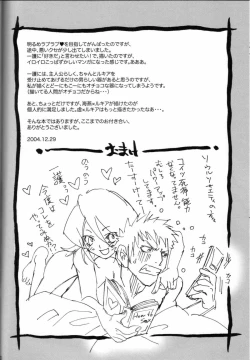 明るめラブラブ♥を目指してがんばったのですが、
途中、悪いクセが少し出てしまいました。
一護に「好きだ」と言わせたい!で、描いたのですが
イロイロこっぱずかしいマンガになった感じです。あああ。
一護には、主人公らしく、ちゃんとルキアを
受け止めてあげるだけの男らしい面があると思うのですが、
私が描くとどーにもこーにもオチョコな器になってしまうようです。
(描いている人間がオチョコだからね…)
あと、ちょっとだけですが、海燕×ルキアが描けたのが
個人的に満足しました。虚×ルキアはもっと描きたかったなあ~…。
そんな本ではありますが、ここまでのお付き合い、
ありがとうございました。
2004.12.29
おまけ
ソウルソサエティの本。
カコ
カコ